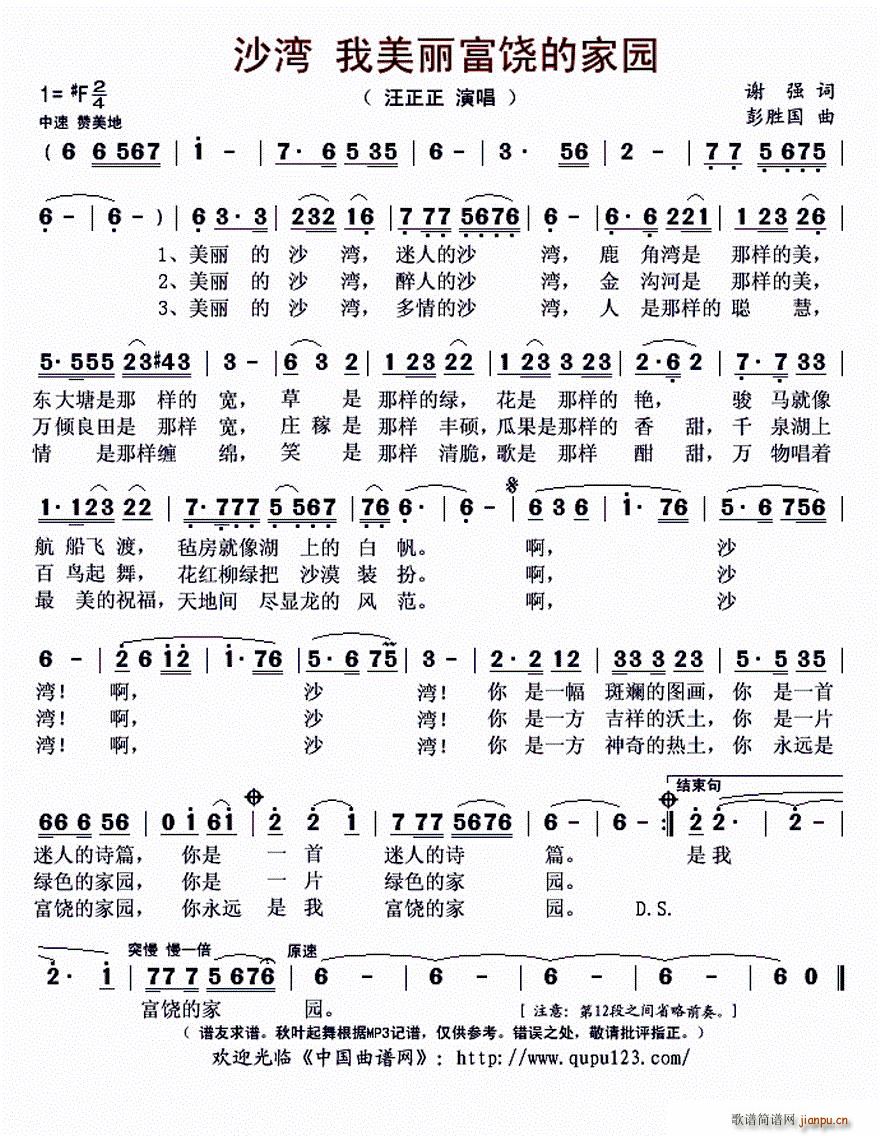 沙湾 我美丽富饶的家园
1= #F 2/4
（ 汪正正 演唱 ）
谢 强 词
中速 赞美地
彭胜国 曲
( 6 6 567 | i - | 7· 6 5 35 | 6 - | 3· 56 | 2 - | 7 7 5 675 |
6 - | 6 - ) | 6 3· 3 | 232 16 | 7 77 5676 | 6 - | 6· 6 221 | 1 23 26 |
1、美丽 的 沙 湾， 迷人的沙 湾， 鹿 角湾是 那样的美，
2、美丽 的 沙 湾， 醉人的沙 湾， 金 沟河是 那样的美，
3、美丽 的 沙 湾， 多情的沙 湾， 人 是那样的 聪 慧，
5· 555 23#43 | 3 - | 6 3 2 | 1 23 22 | 1 23 3 23 | 2·6 2 | 7· 7 33 |
东大塘是那 样的 宽， 草 是 那样的绿，花是 那样的 艳， 骏 马就像
万倾良田是 那样 宽， 庄稼 是 那样 丰硕，瓜果是那样的 香 甜，千 泉湖上
情 是那样缠 绵， 笑 是 那样 清脆，歌是 那样 酣 甜，万 物唱着
1· 123 22 | 7· 777 5 567 | 76 6· | 6 - | 6 3 6 | i· 76 | 5· 6 756 |
航 船飞 渡， 毡房就像湖 上的 白 帆。 啊， 沙
百 鸟起 舞， 花红柳绿把 沙漠 装 扮。 啊， 沙
最 美的祝福，天地间 尽显龙的 风 范。 啊， 沙
6 - | 2 6 i2 | i· 76 | 5· 6 75 | 3 - | 2· 2 12 | 33 3 23 | 5· 5 35 |
湾！ 啊， 沙 湾！ 你 是一幅 斑斓的图画，你 是一首
湾！ 啊， 沙 湾！ 你 是一方 吉祥的沃土，你 是一片
湾！ 啊， 沙 湾！ 你 是一方 神奇的热土，你 永远是
结束句
66 6 56 | 0 i 6i | 2 2 1 | 7 77 5676 | 6 - | 6 - :| 2 2· | 2 - |
迷人的诗篇， 你是 一 首 迷人的诗 篇。 是我
绿色的家园， 你是 一 片 绿色的家 园。
富饶的家园， 你永远 是 我 富饶的家 园。 D.S.
突慢 慢一倍 原速
2· i | 77 7 5 676 | 6 - | 6 - | 6 - | 6 - | 6 0 ||
富饶的家 园。 [ 注意：第12段之间省略前奏。]
（ 谱友求谱。秋叶起舞根据MP3记谱，仅供参考。错误之处，敬请批评指正。）
欢迎光临《中国曲谱网》：http://www.qupu123.com/
歌谱简谱网 jianpu.cn